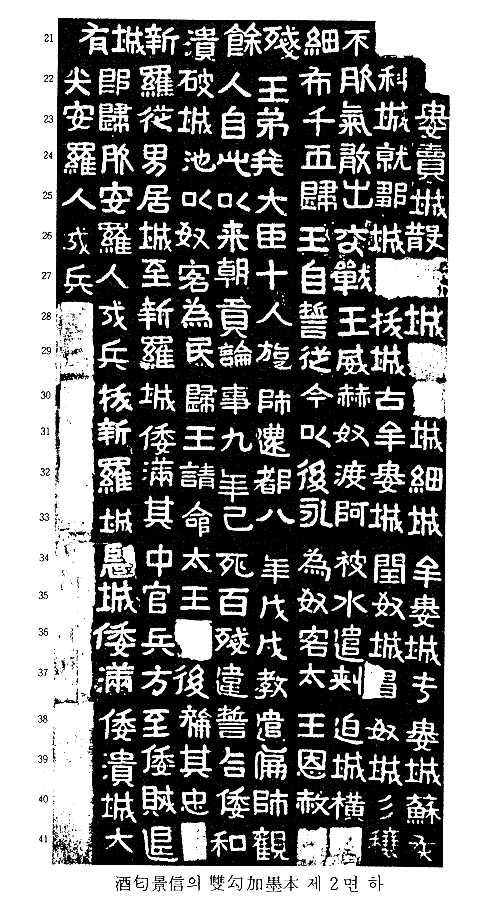 婁賣城散城城細城牟婁城于婁城蘇灰
科城就鄒城拔城古牟婁城閏奴城奴城彡穰
不服氣敢出交戰王威赫奴渡阿被水遣刺迫城橫
細布千匹歸王自誓從今以後永為奴客太王恩赦
殘王弟幷大臣十人旋師還都八年戊戌教遣偏師觀
餘人自此以來朝貢論事九年己亥百殘違誓与倭和
潰破城池以奴客為民歸王請命太王後稱其忠
新羅從男居城至新羅城倭滿其中官兵方至倭賊退
城即歸服安羅人戍兵拔新羅城城倭滿倭潰城大
有尖安羅人戍兵
21
22
23
24
25
26
27
28
29
30
31
32
33
34
35
36
37
38
39
40
41
酒匂景信의 雙勾加墨本 제2면 하